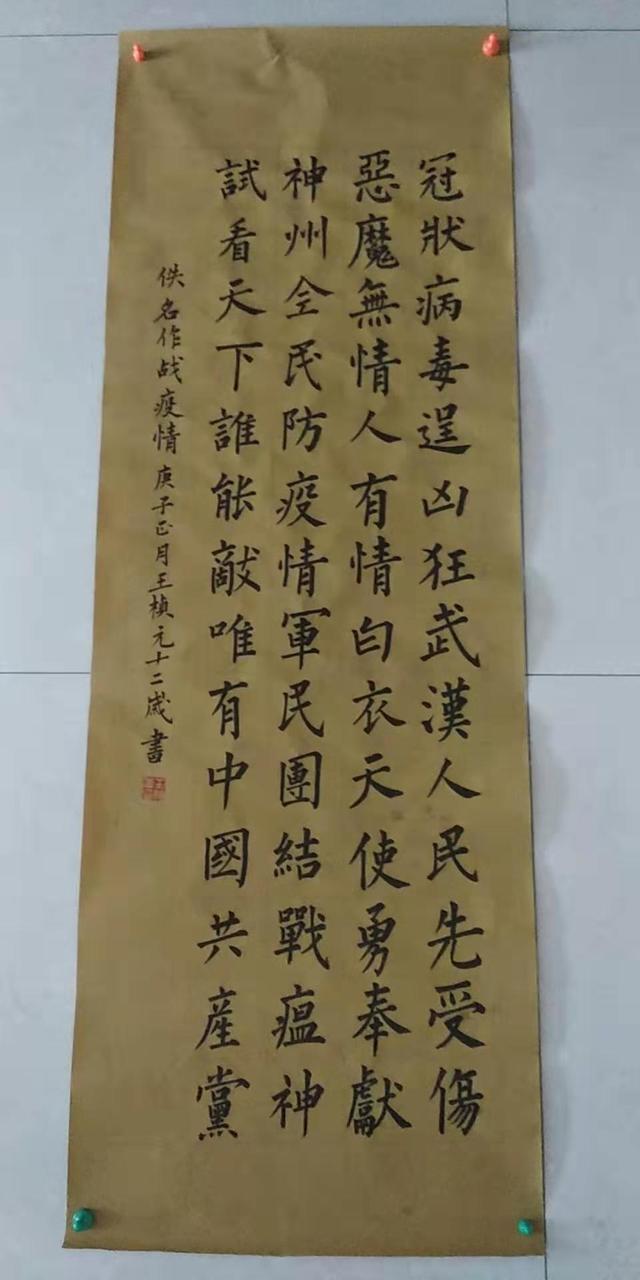 冠狀病毒逞凶狂武漢人民先受傷
惡魔無情人有情白衣天使勇奉獻
神州全民防疫情軍民團結戰瘟神
試看天下誰能敵唯有中國共産黨
佚名作战疫情庚子正月王楨元十二歲書